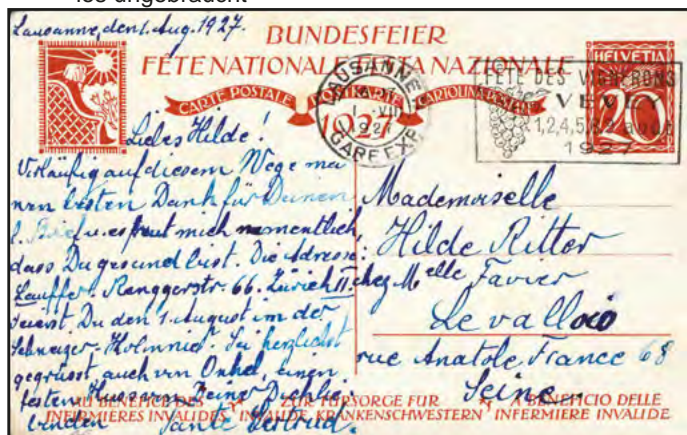 los ungebraucht
Lausanne, den 1. Aug. 1927.
BUNDESFEIER
FÊTE NATIONALE FESTA NAZIONALE
CARTE POSTALE POSTKARTE CARTOLINA POSTALE
1927
HELVETIA
20
LAUSANNE
1. VIII
1927
GARE EXP.
FÊTE DES VIGNERONS
VEVEY
1,2,4,5,8,9 août
1927
Liebes Hilde!
Vorläufig auf diesem Wege mei
nen besten Dank für Deinen
l. Brief u. es freut mich namentlich,
dass Du gesund bist. Die Adresse:
Lauffer. Ranggerstr. 66. Zürich II.
Feierst Du den 1. August in der
Schweizer-Kolonie? Sei herzlichst
gegrüsst, auch von Onkel, einen
festen Kuss von Deiner Dich lie-
benden Tante Gertrud.
Mademoiselle
Hilde Ritter
chez Melle Favier
Levallois
rue Anatole France 68
Seine
AU BENEFICE DES ZUR FÜRSORGE FÜR A BENEFICIO DELLE
INFERMIÈRES INVALIDES INVALIDE KRANKENSCHWESTERN INFERMIERE INVALIDE